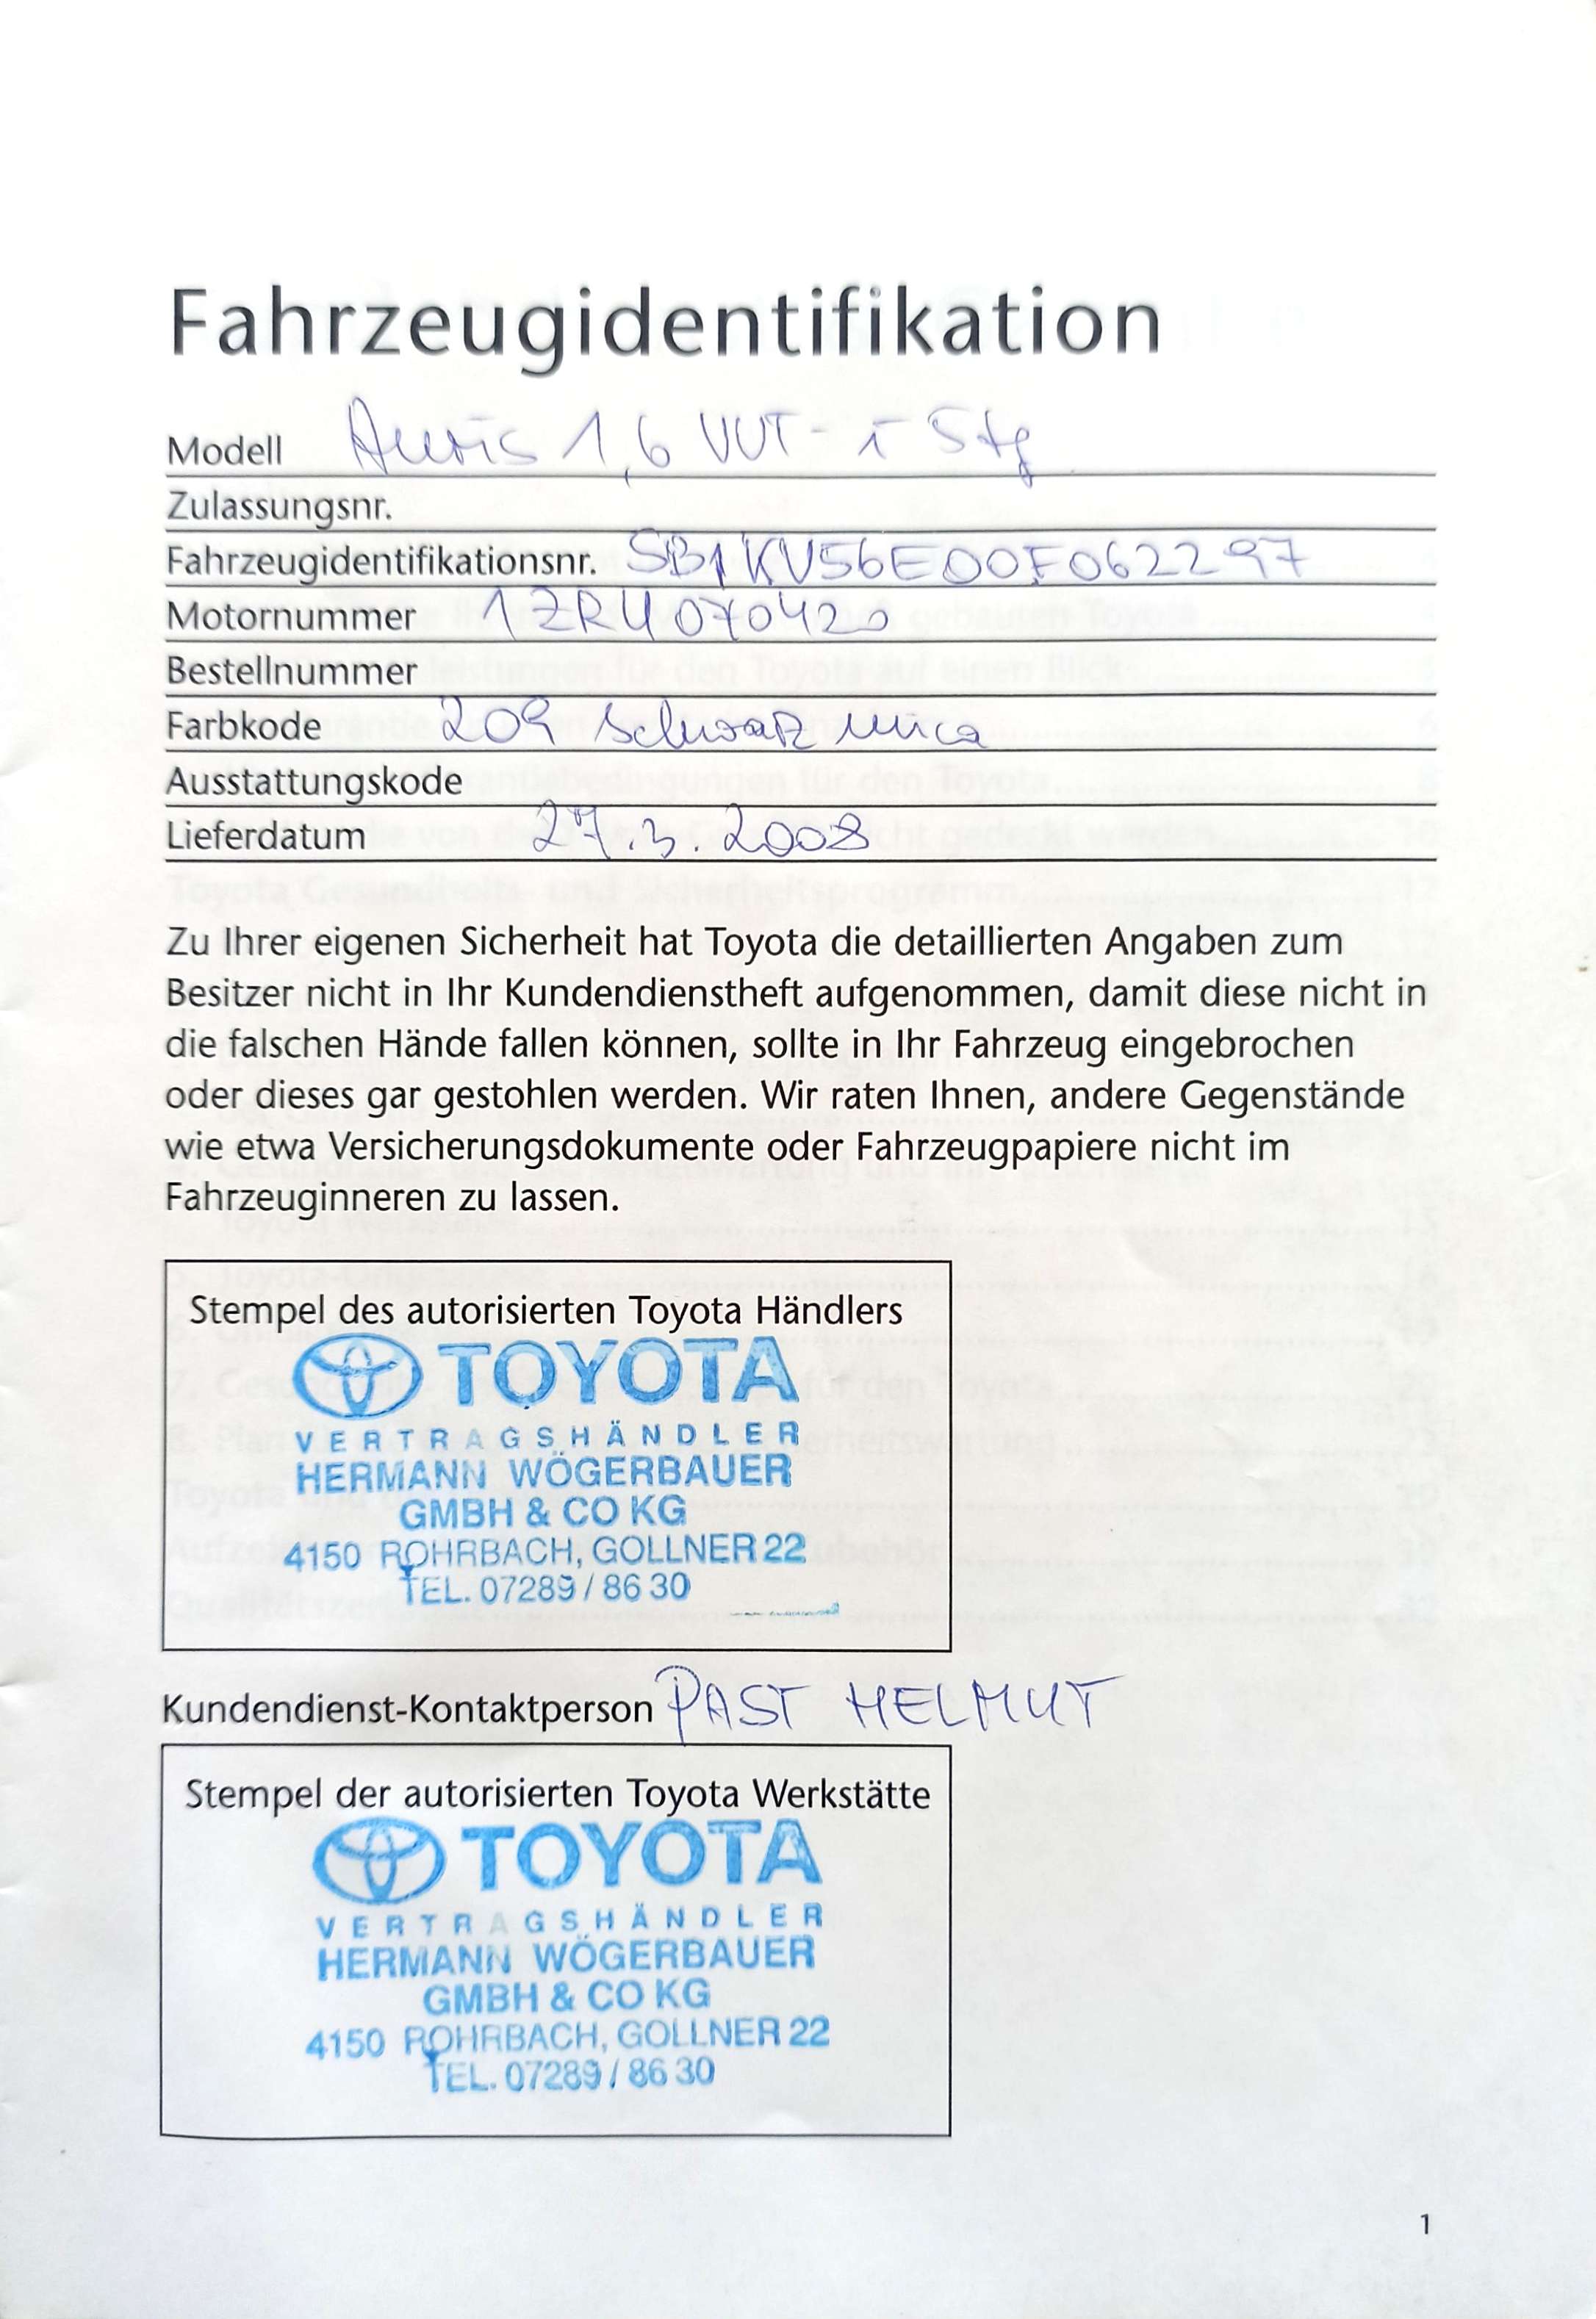 Fahrzeugidentifikation
Modell Auris 1,6 VVT-i 5tg
Zulassungsnr.
Fahrzeugidentifikationsnr. SB1KV56E00F062297
Motornummer 1ZR4070420
Bestellnummer
Farbkode 209 schwarz mica
Ausstattungskode
Lieferdatum 27.3.2008
Zu Ihrer eigenen Sicherheit hat Toyota die detaillierten Angaben zum
Besitzer nicht in Ihr Kundendienstheft aufgenommen, damit diese nicht in
die falschen Hände fallen können, sollte in Ihr Fahrzeug eingebrochen
oder dieses gar gestohlen werden. Wir raten Ihnen, andere Gegenstände
wie etwa Versicherungsdokumente oder Fahrzeugpapiere nicht im
Fahrzeuginneren zu lassen.
Stempel des autorisierten Toyota Händlers
TOYOTA
VERTRAGSHÄNDLER
HERMANN WÖGERBAUER
GMBH & CO KG
4150 ROHRBACH, GOLLNER 22
TEL. 07289 / 86 30
Kundendienst-Kontaktperson PAST HELMUT
Stempel der autorisierten Toyota Werkstätte
TOYOTA
VERTRAGSHÄNDLER
HERMANN WÖGERBAUER
GMBH & CO KG
4150 ROHRBACH, GOLLNER 22
TEL. 07289 / 86 30
1